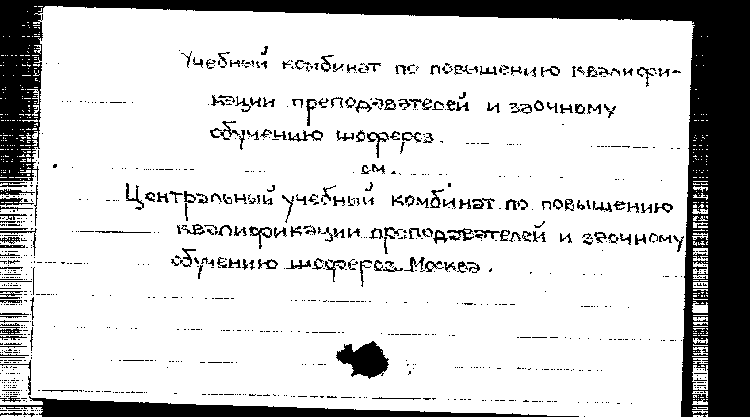 Учебный комбинат по повышению квалифи-
кации преподавателей и заочному
обучению шоферов.
см.
Центральный учебный комбинат по повышению
квалификации преподавателей и заочному
обучению шоферов. Москва.